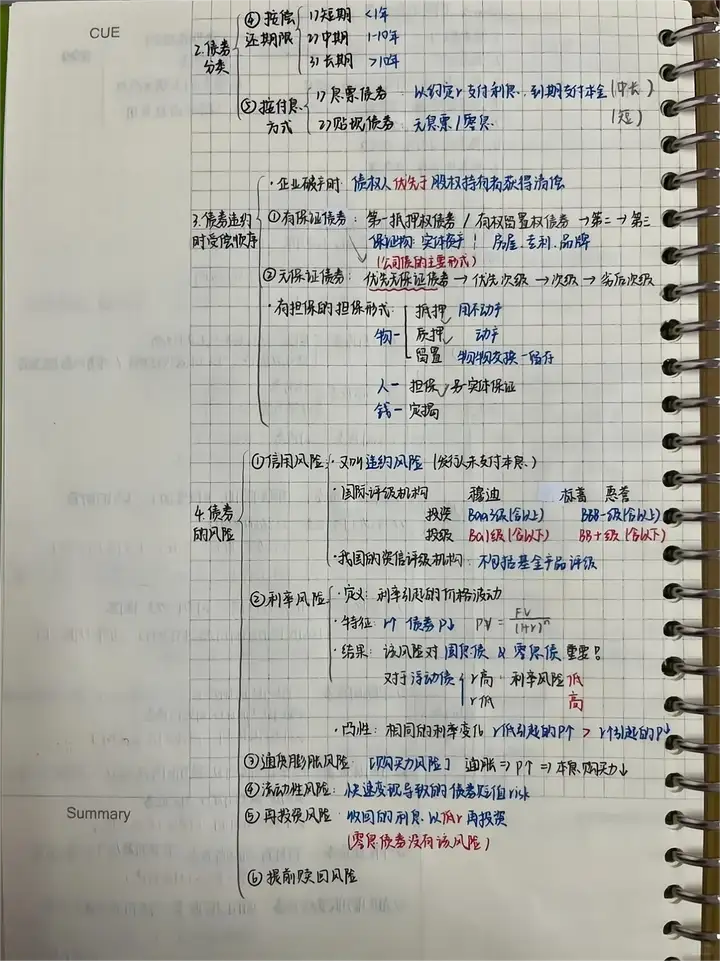 CUE
④ 按偿还期限
1) 短期 <1年
2) 中期 1-10年
3) 长期 >10年
2. 债券分类
⑤ 按付息方式
1) 息票债券: 以约定r支付利息. 到期支付本金 (中长)
2) 贴现债券: 无息票 / 零息. (短)
3. 债券违约时受偿顺序
· 企业破产时: 债权人优先于股权持有者获得清偿
① 有保证债券: 第一抵押权债券 / 有权留置权债券 → 第二 → 第三
保证物: 实体资产 房屋. 专利. 品牌
(公司债的主要形式)
② 无保证债券: 优先无保证债券 → 优先次级 → 次级 → 劣后次级
· 有担保的担保形式:
物- 抵押 用不动产
质押 动产
留置 物物交换-留存
人- 担保 另一实体保证
钱- 定担
4. 债券的风险
① 信用风险: · 又叫违约风险 (发行人未支付本息.)
· 国际评级机构 穆迪 标普 惠誉
投资 Baa3级(含以上) BBB-级(含以上)
投级 Ba1级(含以下) BB+级(含以下)
· 我国的资信评级机构: 不包括基金产品评级
② 利率风险 · 定义: 利率引起的价格波动
· 特征: r↑ 债券P↓ PV = FV/(1+r)^n
· 结果: 该风险对固息债 & 零息债 重要!
对于浮动债 r高: 利率风险低
r低 高
· 凸性: 相同的利率变化 r低引起的P↑ > r↑引起的P↓
③ 通货膨胀风险: [购买力风险] 通胀 ⇒ P↑ ⇒ 本息购买力↓
④ 流动性风险: 快速变现导致的债券贬值risk
Summary
⑤ 再投资风险 收回的利息以低r再投资
(零息债券没有该风险)
⑥ 提前赎回风险